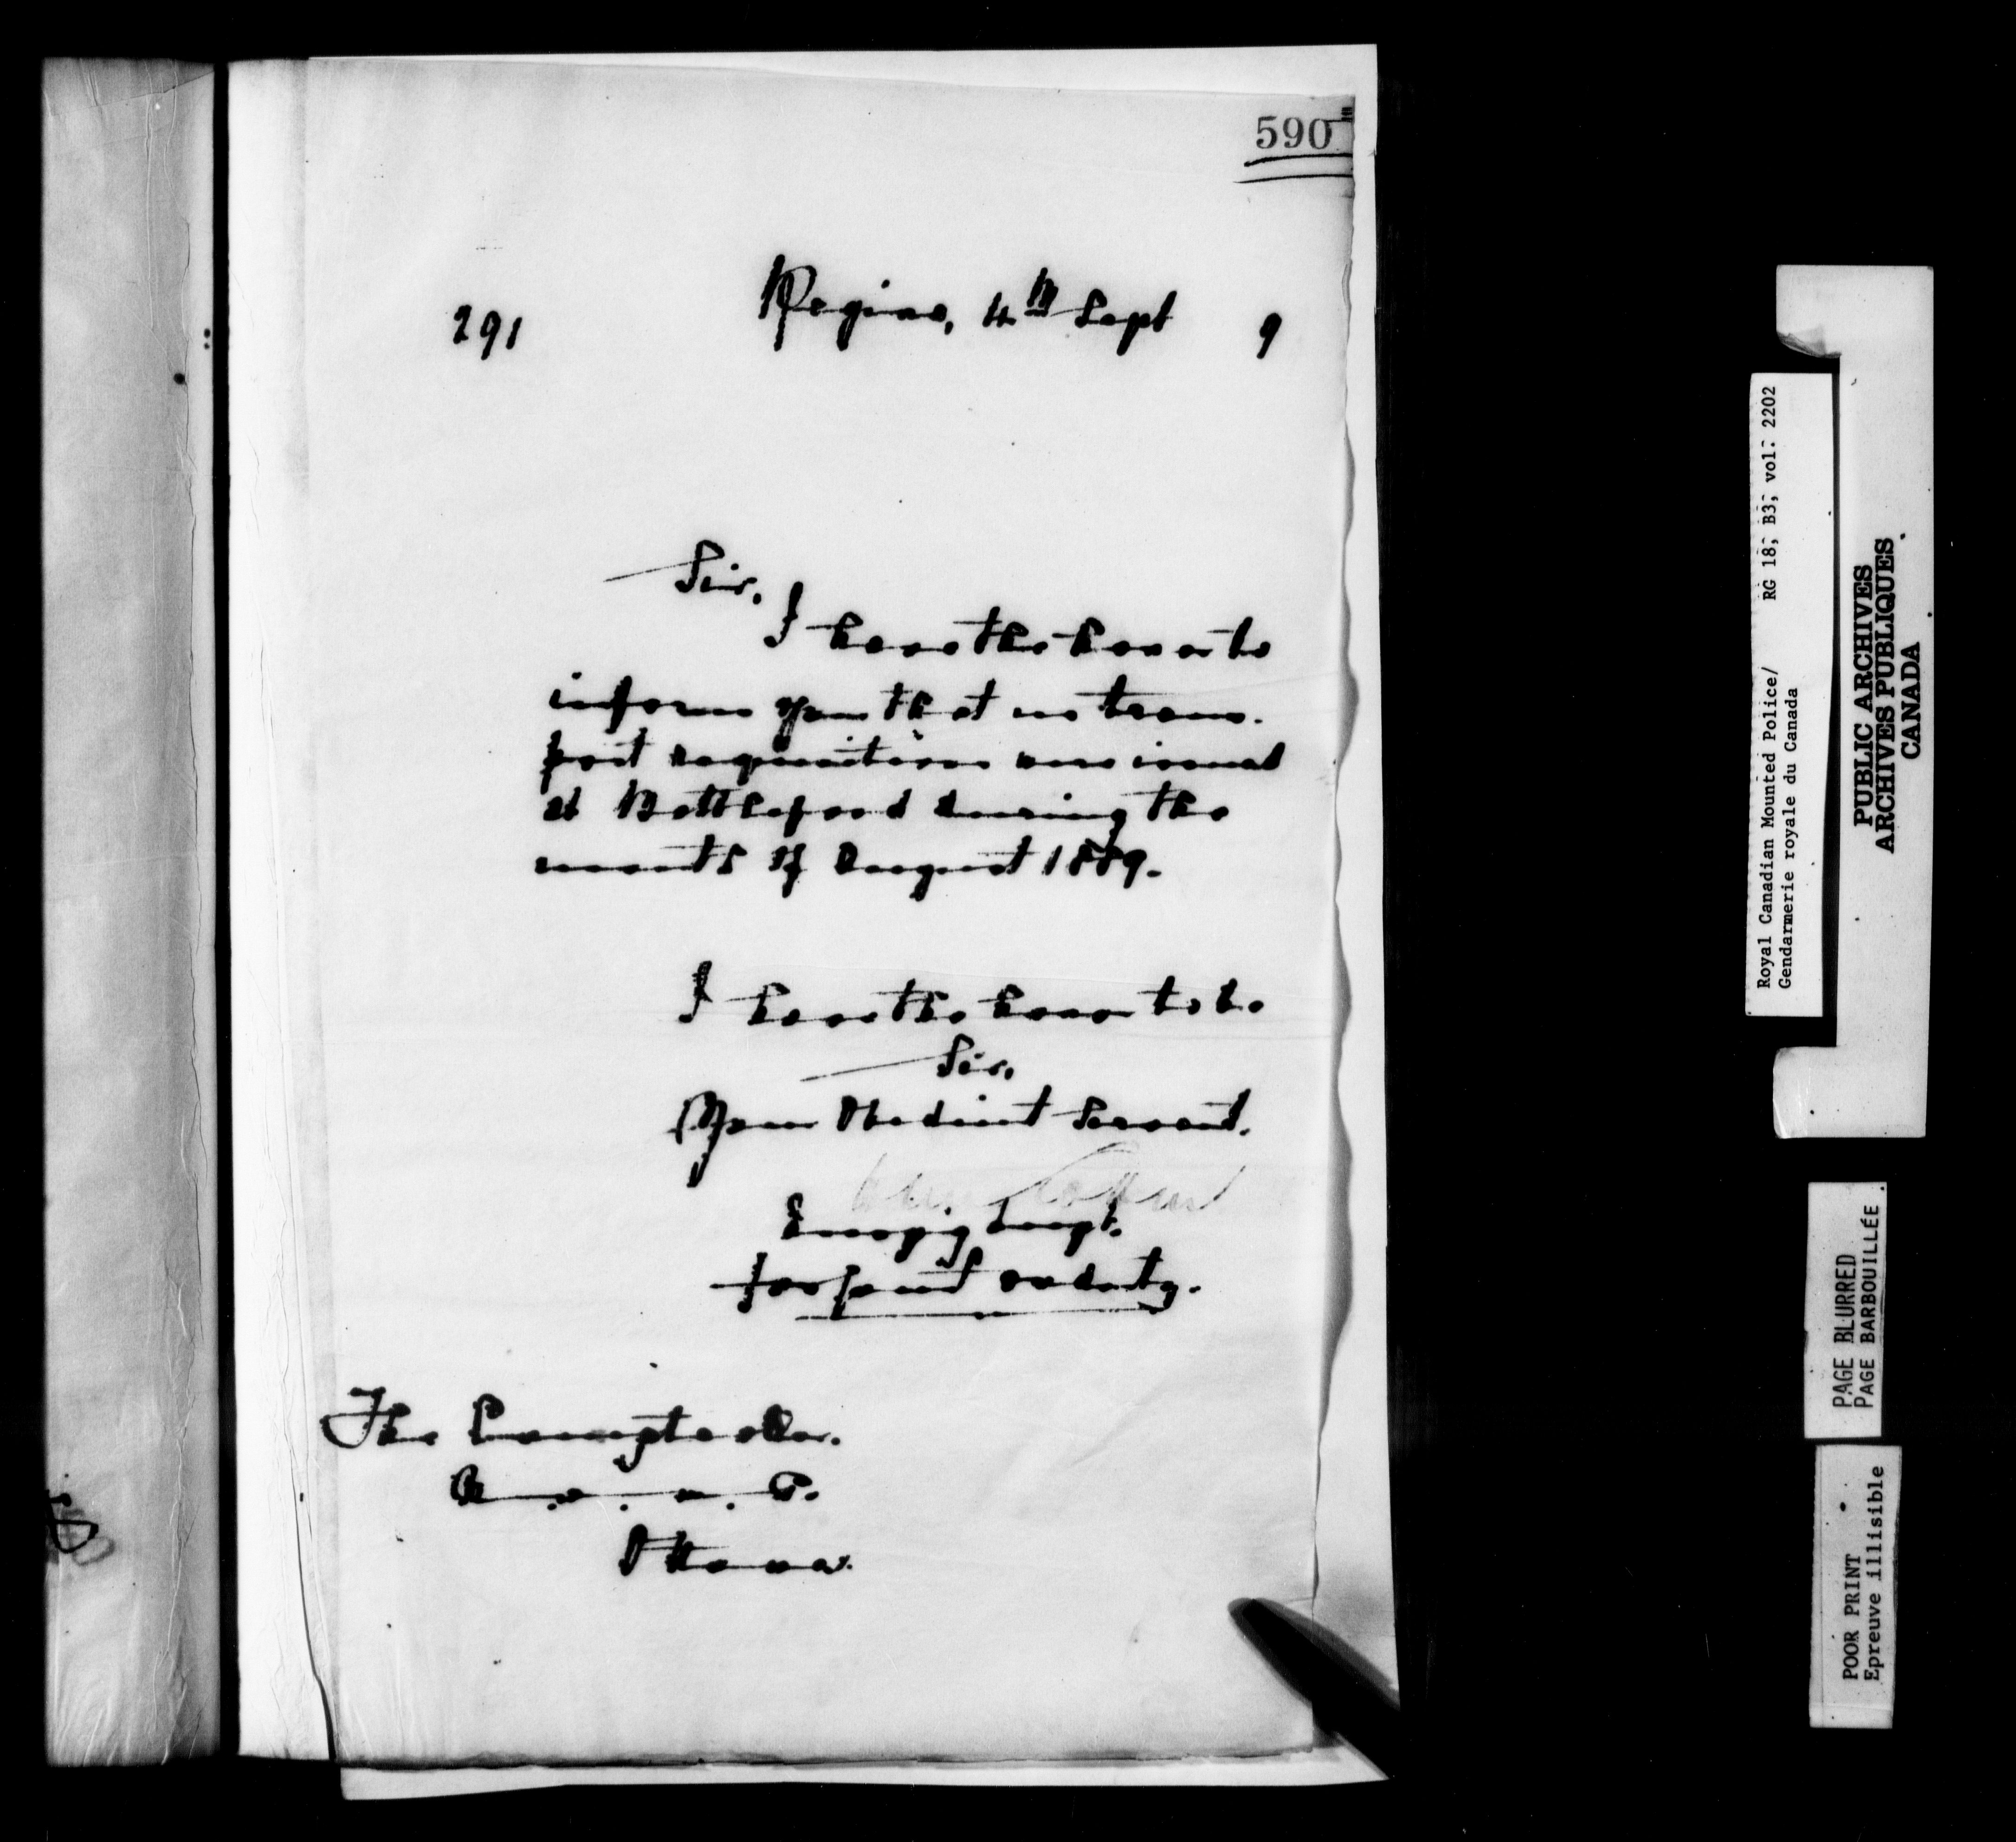 590
291
Regina, 4th Sept 9
Sir,
I have the honor to
inform you that no trans-
port requisitions were issued
at Battleford during the
month of August 1889.
I have the honor to be
Sir,
Your Obedient Servant.
Supt.
The Comptroller.
N. W. M. P.
Ottawa.
Royal Canadian Mounted Police/ RG 18, B3, vol. 2202
Gendarmerie royale du Canada
PUBLIC ARCHIVES
ARCHIVES PUBLIQUES
CANADA
PAGE BLURRED
PAGE BARBOUILLÉE
POOR PRINT
Epreuve illisible